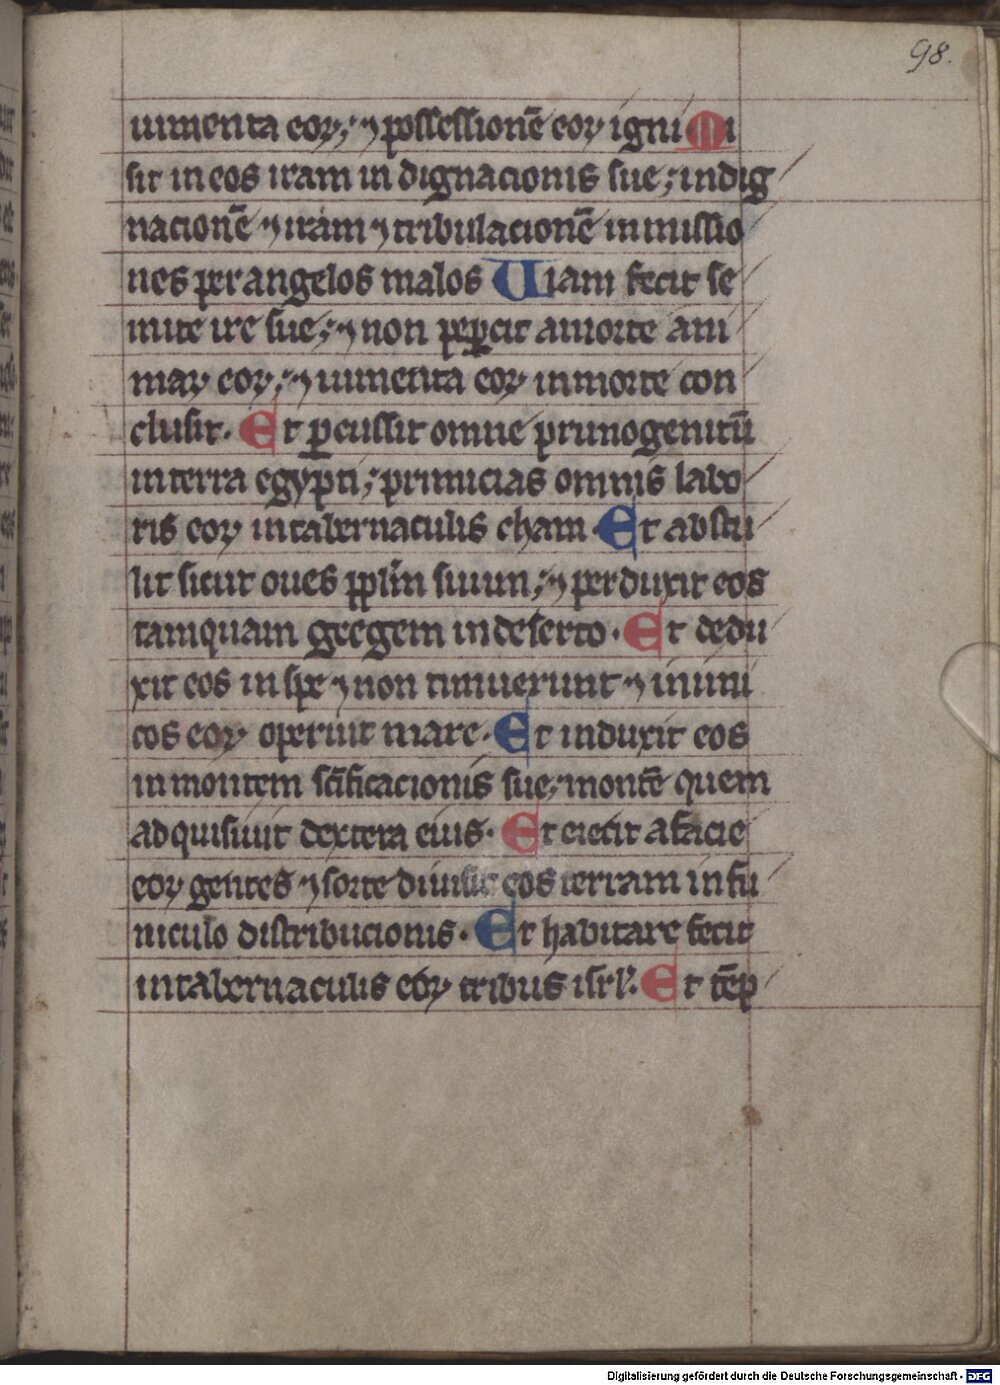 98.
iumenta eoꝝ; ⁊ possessionē eoꝝ igni Mi
sit in eos iram in dignacionis sue; indig
nacionē ⁊ iram ⁊ tribulacionē inmissio
nes per angelos malos Uiam fecit se
mite ire sue; ⁊ non peꝑcit amorte ani
maꝝ eoꝝ; ⁊ iumenta eoꝝ inmorte con
clusit. Et ꝑcussit omne primogenitū
interra egypti; primicias omnis labo
ris eoꝝ intabernaculis cham. Et abstu
lit sicut oues pplm̄ suum; ⁊ perduxit eos
tamquam gregem indeserto. Et dedu
xit eos inspe ⁊ non timuerunt ⁊ inimi
cos eoꝝ operuit mare. Et induxit eos
inmontem scīficacionis sue; montē quem
adquisiuit dextera eius. Et eiecit afacie
eoꝝ gentes ⁊ sorte diuisit eos terram infu
niculo distribucionis. Et habitare fecit
intabernaculis eoꝝ tribus isrl'. Et tēp
Digitalisierung gefördert durch die Deutsche Forschungsgemeinschaft - DFG